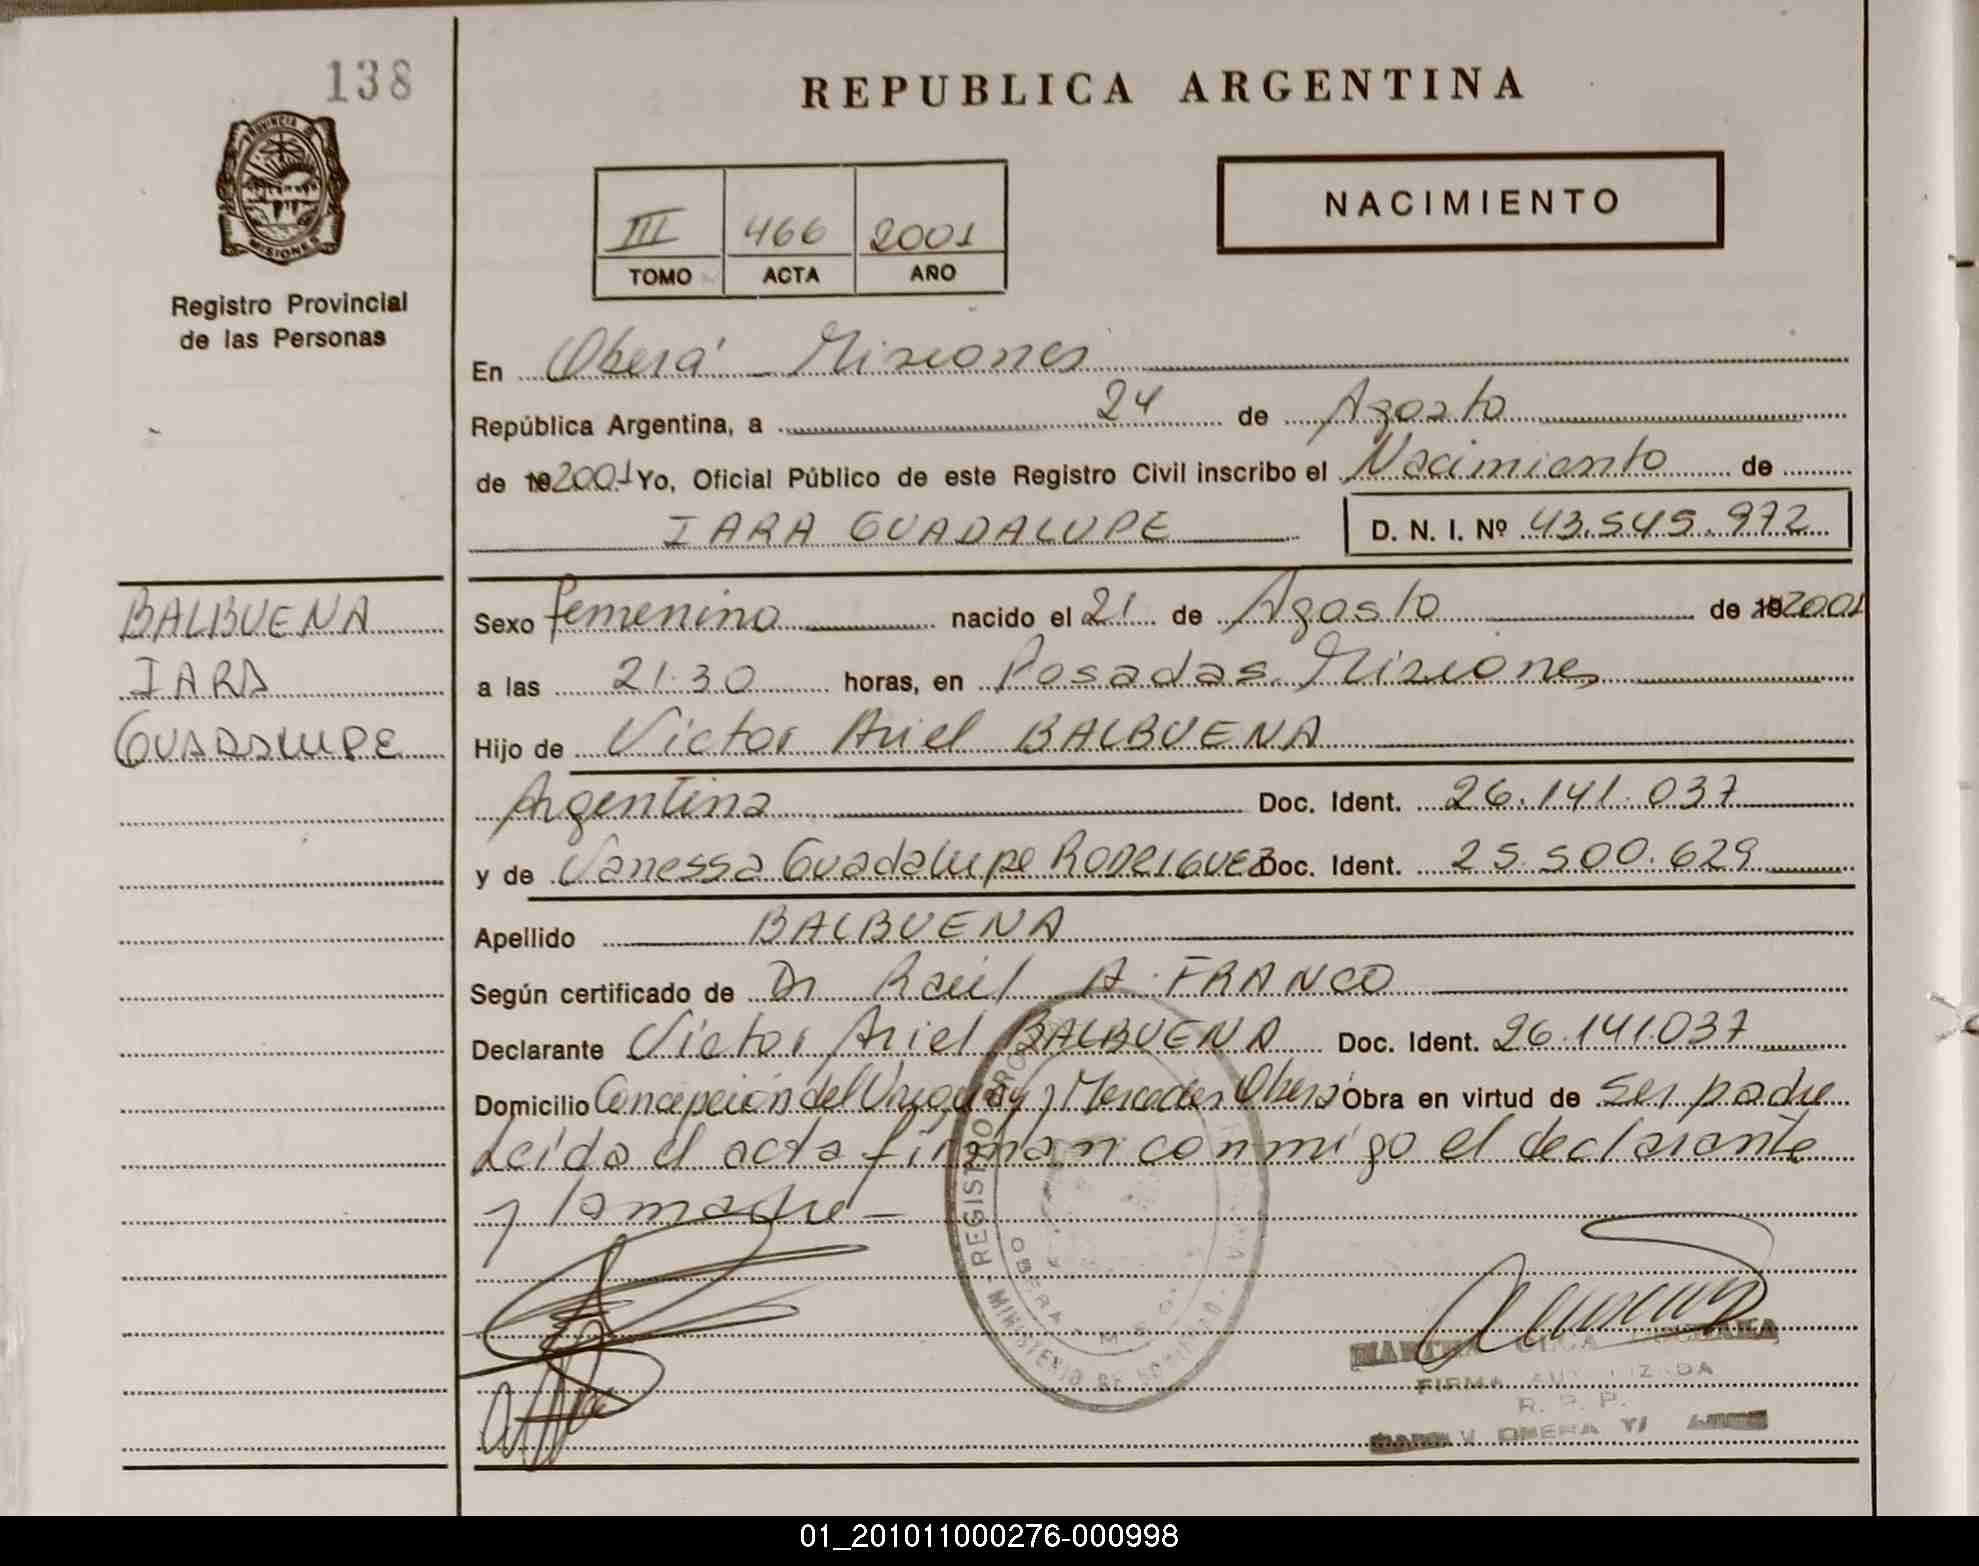 138
REPUBLICA ARGENTINA
PROVINCIA DE
MISIONES
NACIMIENTO
III 466 2001
TOMO ACTA AÑO
Registro Provincial
de las Personas
En Oberá - Misiones
República Argentina, a 24 de Agosto
de 19 2001 Yo, Oficial Público de este Registro Civil inscribo el Nacimiento de
IARA GUADALUPE D. N. I. Nº 43.545.972
BALBUENA
IARA
GUADALUPE
Sexo femenino nacido el 21 de Agosto de 19 2001
a las 21.30 horas, en Posadas. Misiones
Hijo de Victor Ariel BALBUENA
Argentina Doc. Ident. 26.141.037
y de Vanessa Guadalupe RODRIGUEZ Doc. Ident. 25.500.629
Apellido BALBUENA
Según certificado de Dr Raúl A. FRANCO
Declarante Victor Ariel BALBUENA Doc. Ident. 26.141.037
Domicilio Concepción del Uruguay y Mercedes Oberá Obra en virtud de ser padre
Leida el acta firman conmigo el declarante
y la madre -
REGISTRO
OBERA
MINISTERIO DE
FIRMA AUTORIZADA
R. P. P.
OBERA
01_201011000276-000998